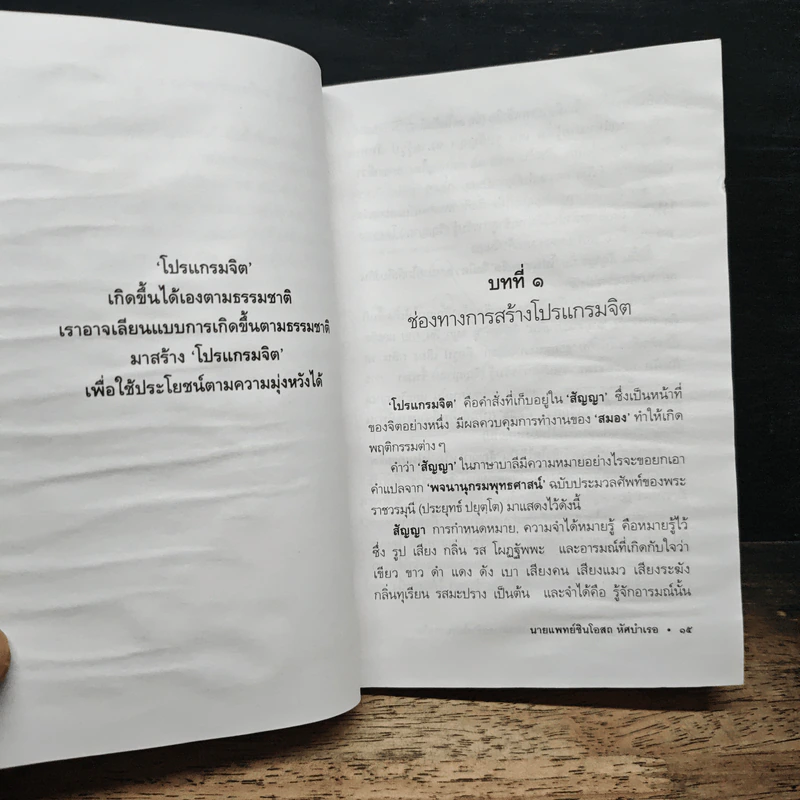 ‘โปรแกรมจิต’
เกิดขึ้นได้เองตามธรรมชาติ
เราอาจเลียนแบบการเกิดขึ้นตามธรรมชาติ
มาสร้าง ‘โปรแกรมจิต’
เพื่อใช้ประโยชน์ตามความมุ่งหวังได้
บทที่ ๑
ช่องทางการสร้างโปรแกรมจิต
‘โปรแกรมจิต’ คือคำสั่งที่เก็บอยู่ใน ‘สัญญา’ ซึ่งเป็นหน้าที่
ของจิตอย่างหนึ่ง มีผลควบคุมการทำงานของ ‘สมอง’ ทำให้เกิด
พฤติกรรมต่าง ๆ
คำว่า ‘สัญญา’ ในภาษาบาลีมีความหมายอย่างไรจะขอยกเอา
คำแปลจาก ‘พจนานุกรมพุทธศาสน์’ ฉบับประมวลศัพท์ของพระ
ราชวรมุนี (ประยุทธ์ ปยุตฺโต) มาแสดงไว้ดังนี้
สัญญา การกำหนดหมาย, ความจำได้หมายรู้ คือหมายรู้ไว้
ซึ่ง รูป เสียง กลิ่น รส โผฏฐัพพะ และอารมณ์ที่เกิดกับใจว่า
เขียว ขาว ดำ แดง ดัง เบา เสียงคน เสียงแมว เสียงระฆัง
กลิ่นทุเรียน รสมะปราง เป็นต้น และจำได้คือ รู้จักอารมณ์นั้น
นายแพทย์ชินโอสถ หัศบำเรอ • ๑๕